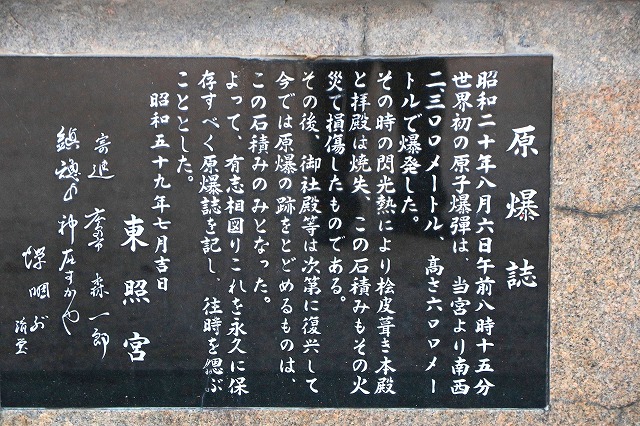 原爆誌
昭和二十年八月六日午前八時十五分
世界初の原子爆弾は、当宮より南西
二、三〇〇メートル、高さ六〇〇メー
トルで爆発した。
その時の閃光熱により桧皮葺き本殿
と拝殿は焼失、この石積みもその火
災で損傷したものである。
その後、御社殿等は次第に復興して
今では原爆の跡をとどめるものは、
この石積みのみとなった。
よって、有志相図りこれを永久に保
存すべく原爆誌を記し、往時を偲ぶ
こととした。
昭和五十九年七月吉日
東照宮
寄進 森一郎
神在すかや